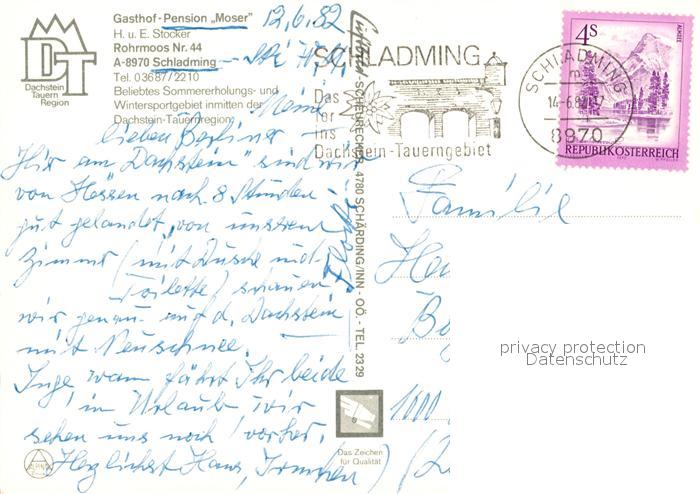 Gasthof-Pension „Moser"
H. u. E. Stocker
Rohrmoos Nr. 44
A-8970 Schladming
Tel. 03687/2210
Beliebtes Sommererholungs- und
Wintersportgebiet inmitten der
Dachstein-Tauernregion
DT
Dachstein
Tauern
Region
12.6.82
Meine
lieben Berliner
Hier am „Dachstein" sind wir
von Hessen nach 8 Stunden
gut gelandet, von unserem
Zimmer (mit Dusche und
Toilette) schauen
wir genau auf d. Dachstein
mit Neuschnee.
Inge wann fährt Ihr beide
in Urlaub, wir
sehen uns noch vorher.
Herzlichst Hans, Irmchen
SCHEURECKER, 4780 SCHÄRDING/INN - OÖ. - TEL. 2329
Das Zeichen
für Qualität
SCHLADMING
Das
Tor
ins
Dachstein-Tauerngebiet
SCHLADMING
14-6.82
8970
4S
ALMSEE
REPUBLIK ÖSTERREICH
Familie
1000
privacy protection
Datenschutz